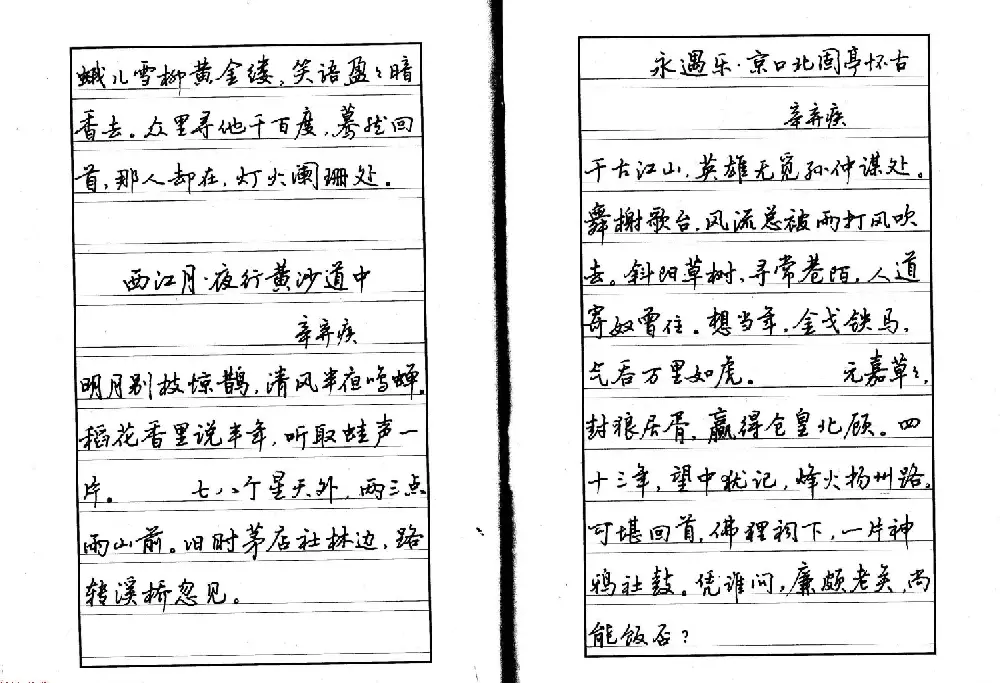 蛾儿雪柳黄金缕，笑语盈々暗
香去。众里寻他千百度，蓦然回
首，那人却在，灯火阑珊处。
西江月·夜行黄沙道中
辛弃疾
明月别枝惊鹊，清风半夜鸣蝉。
稻花香里说丰年，听取蛙声一
片。 七八个星天外，两三点
雨山前。旧时茅店社林边，路
转溪桥忽见。
永遇乐·京口北固亭怀古
辛弃疾
千古江山，英雄无觅孙仲谋处。
舞榭歌台，风流总被雨打风吹
去。斜阳草树，寻常巷陌，人道
寄奴曾住。想当年，金戈铁马，
气吞万里如虎。 元嘉草々，
封狼居胥，赢得仓皇北顾。四
十三年，望中犹记，烽火扬州路。
可堪回首，佛狸祠下，一片神
鸦社鼓。凭谁问，廉颇老矣，尚
能饭否？